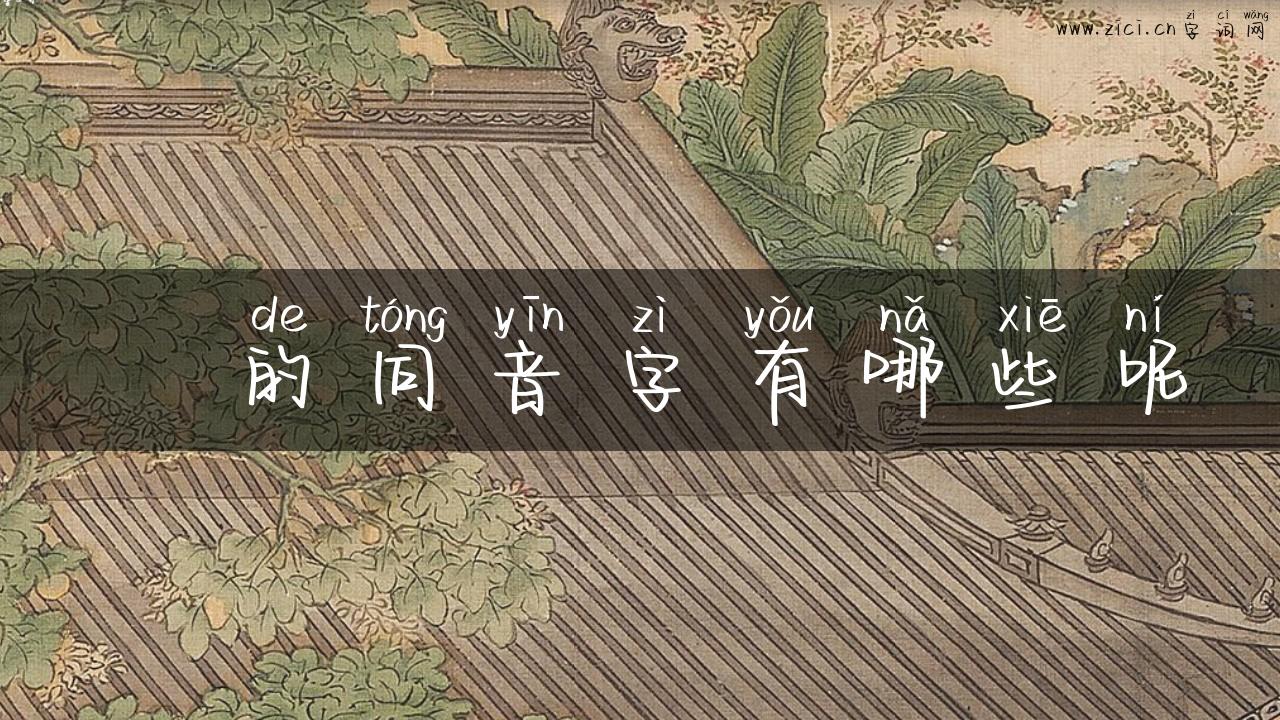 zì cí wǎng
www.zici.cn 字词网
de tóng yīn zì yǒu nǎ xiē ní
的同音字有哪些呢